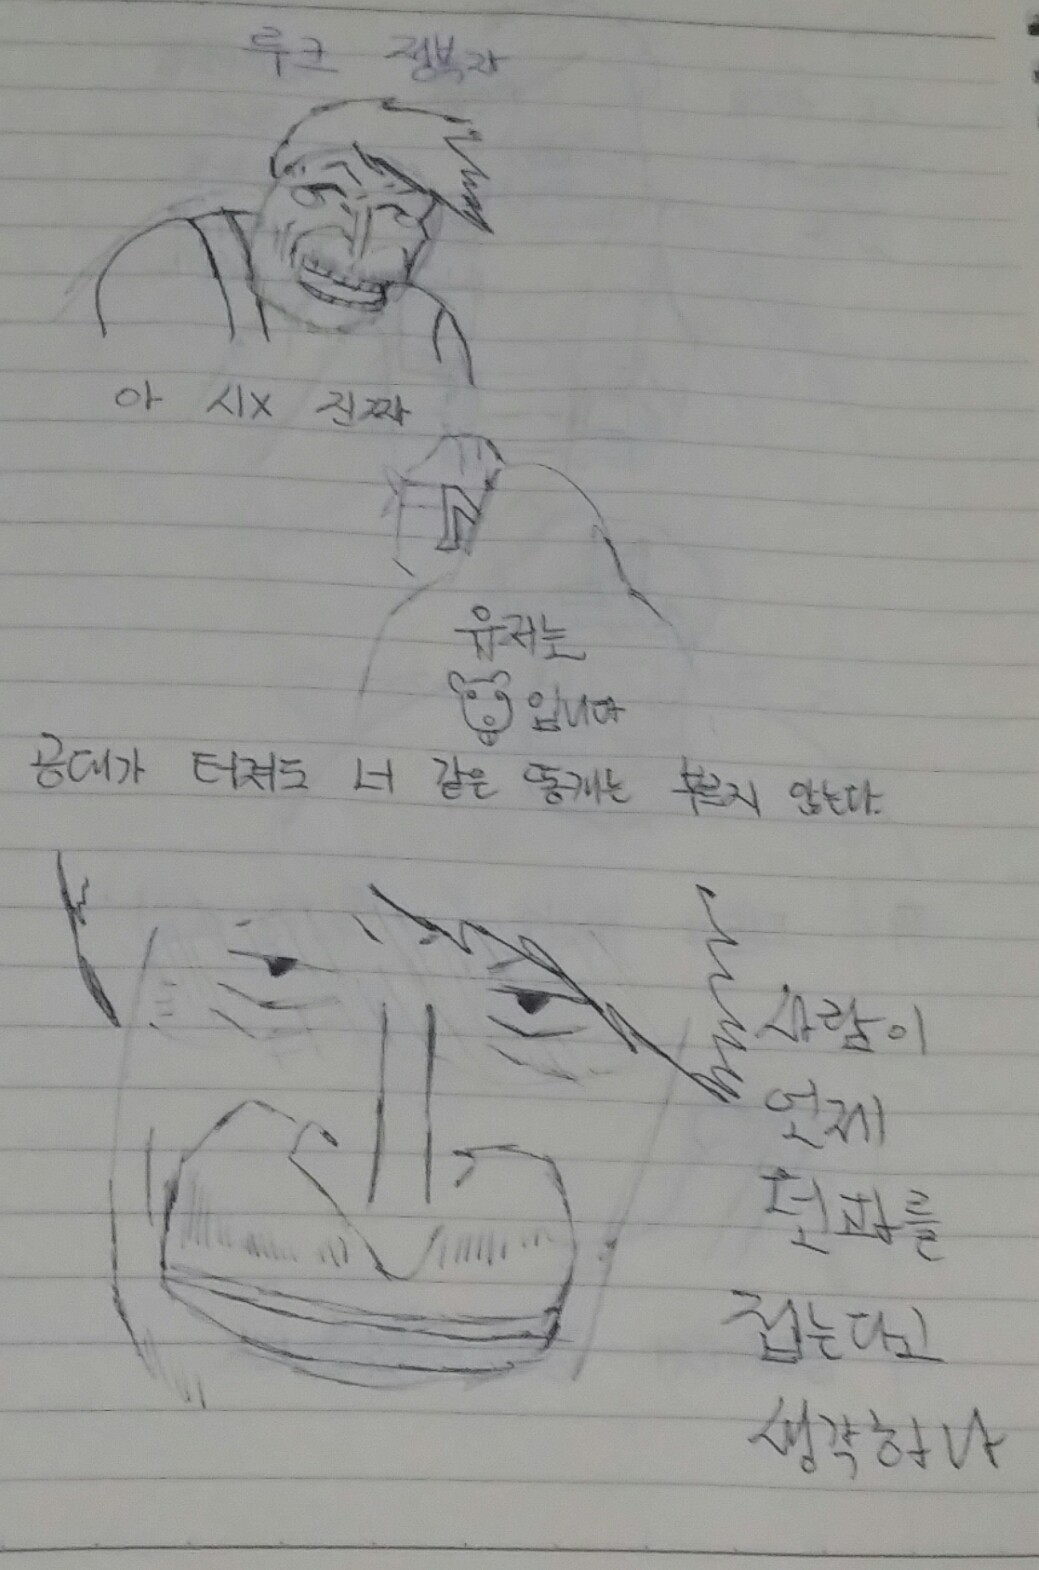 루크 정복자
아 시X 진짜
유저는
입니다
공대가 터져도 너 같은 똥캐는 부르지 않는다.
사람이
언제
던파를
접는다고
생각하나